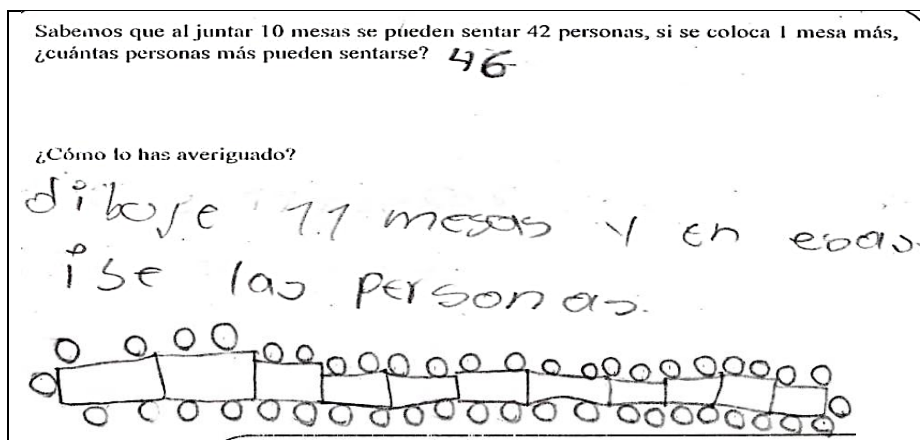 Sabemos que al juntar 10 mesas se pueden sentar 42 personas, si se coloca 1 mesa más,
¿cuántas personas más pueden sentarse? 46
¿Cómo lo has averiguado?
dibuje 11 mesas y en esas
ise las personas.